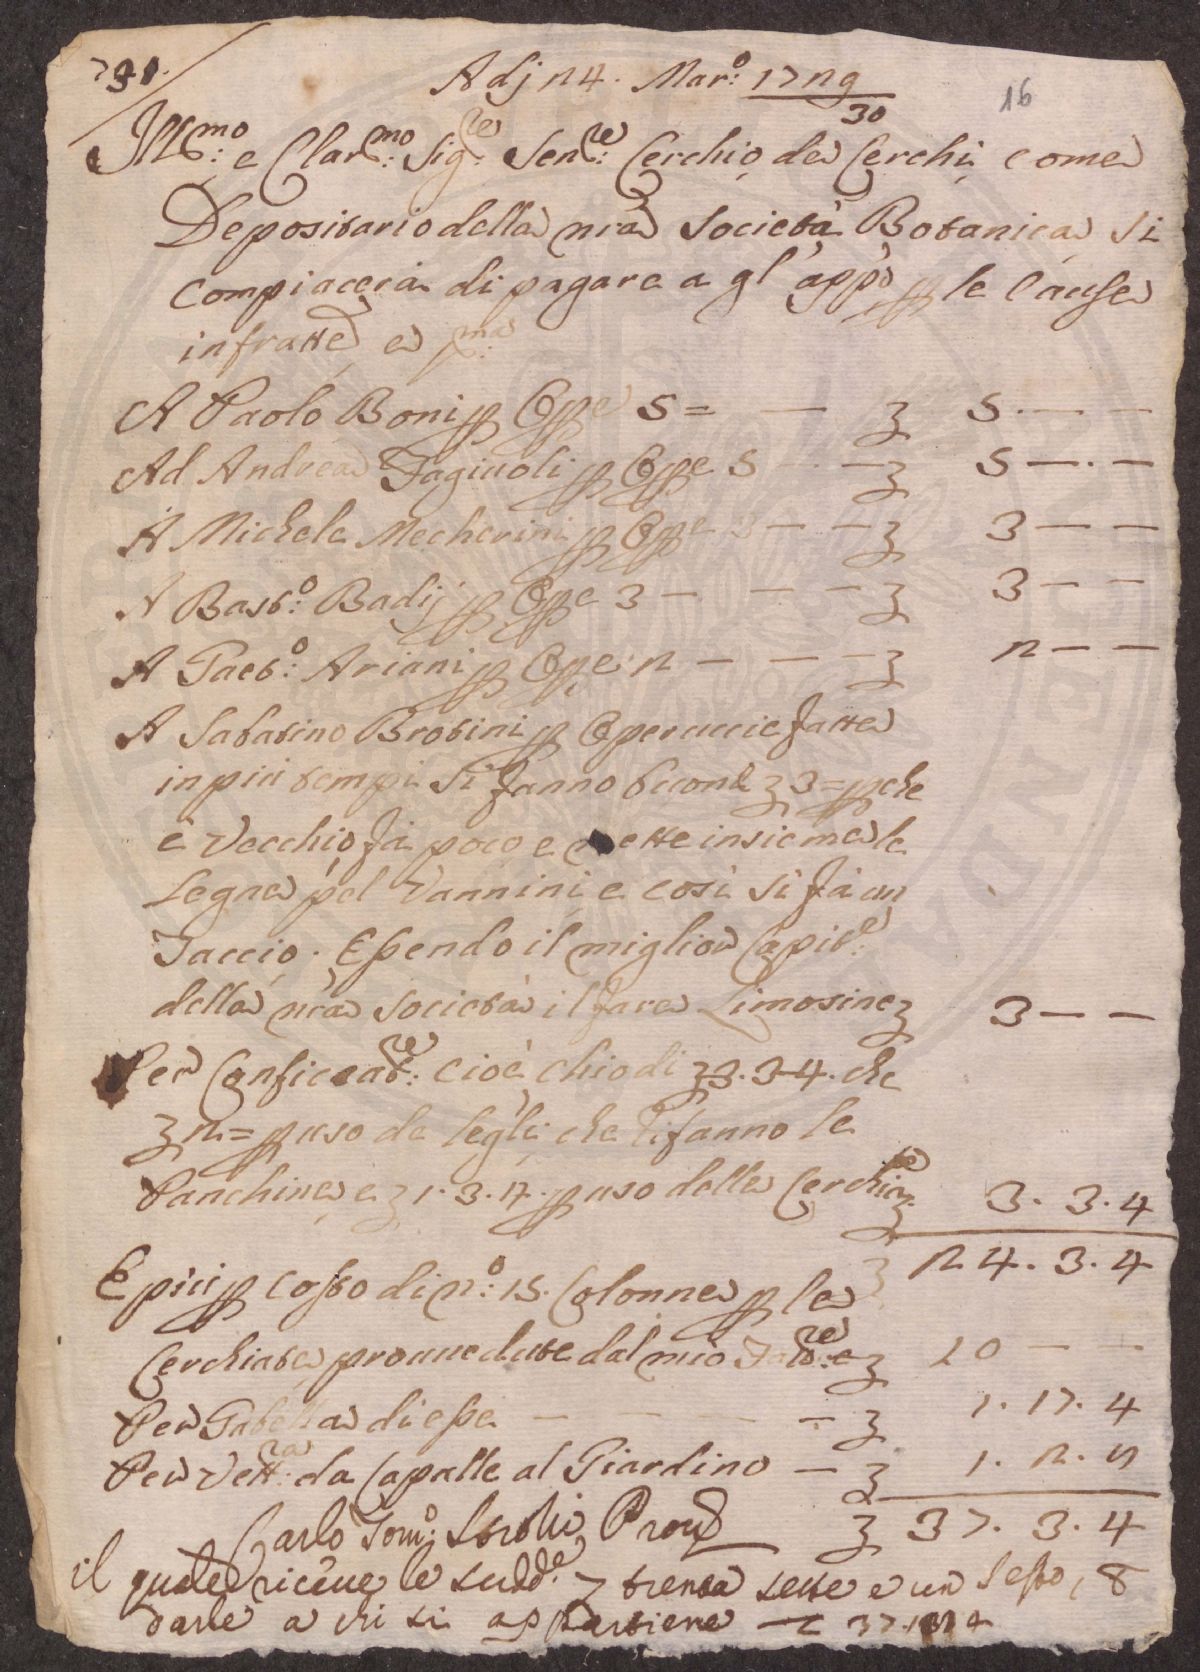 791.
Adj 24. Mar.o 1729
30
16
Ill.mo e Clar.mo Sig.re Sen.re Cerchio de Cerchi come
Depositario della nra Società Botanica si
compiaccia di pagare a gl'appo p le Cause
infratte e pma
A Paolo Boni p Ope 5 = — 5. — —
Ad Andrea Fagiuoli p Ope 5 — — 5 — . —
A Michele Mecherini p Ope 3 — — 3 — —
A Bast.o Badij p Ope 3 — — — 3 — —
A Gaet.o Ariani p Ope 2 — — — 2 — —
A Sabatino Brotini p Operuccie fatte
in più tempi si fanno buone 3 = p che
è Vecchio fà poco e mette insieme le
Legne pel Vannini e così si fà un
Taccio. Essendo il miglior Capit.e
della nra Società il fare Limosine 3 — —
Per Conficcat.re cioè chiodi 3.3.4. che
2 = p uso de legli che si fanno le
Panchine e 1.3.4. p uso delle Cerchiate 3. 3. 4
24. 3. 4
E più p costo di n.o 15. Colonne p le
Cerchiate prouuedute dal mio Fatt.re 10 — —
Per Gabella di esse — — — — 1. 17. 4
Per Vett.ra da Capalle al Giardino — 1. 2. 8
Carlo Tom.o Strozzi Proud 37. 3. 4
il quale riceue le sudd.e trenta sette e un sesto, 8
darle a chi si appartiene — 37. 3. 4